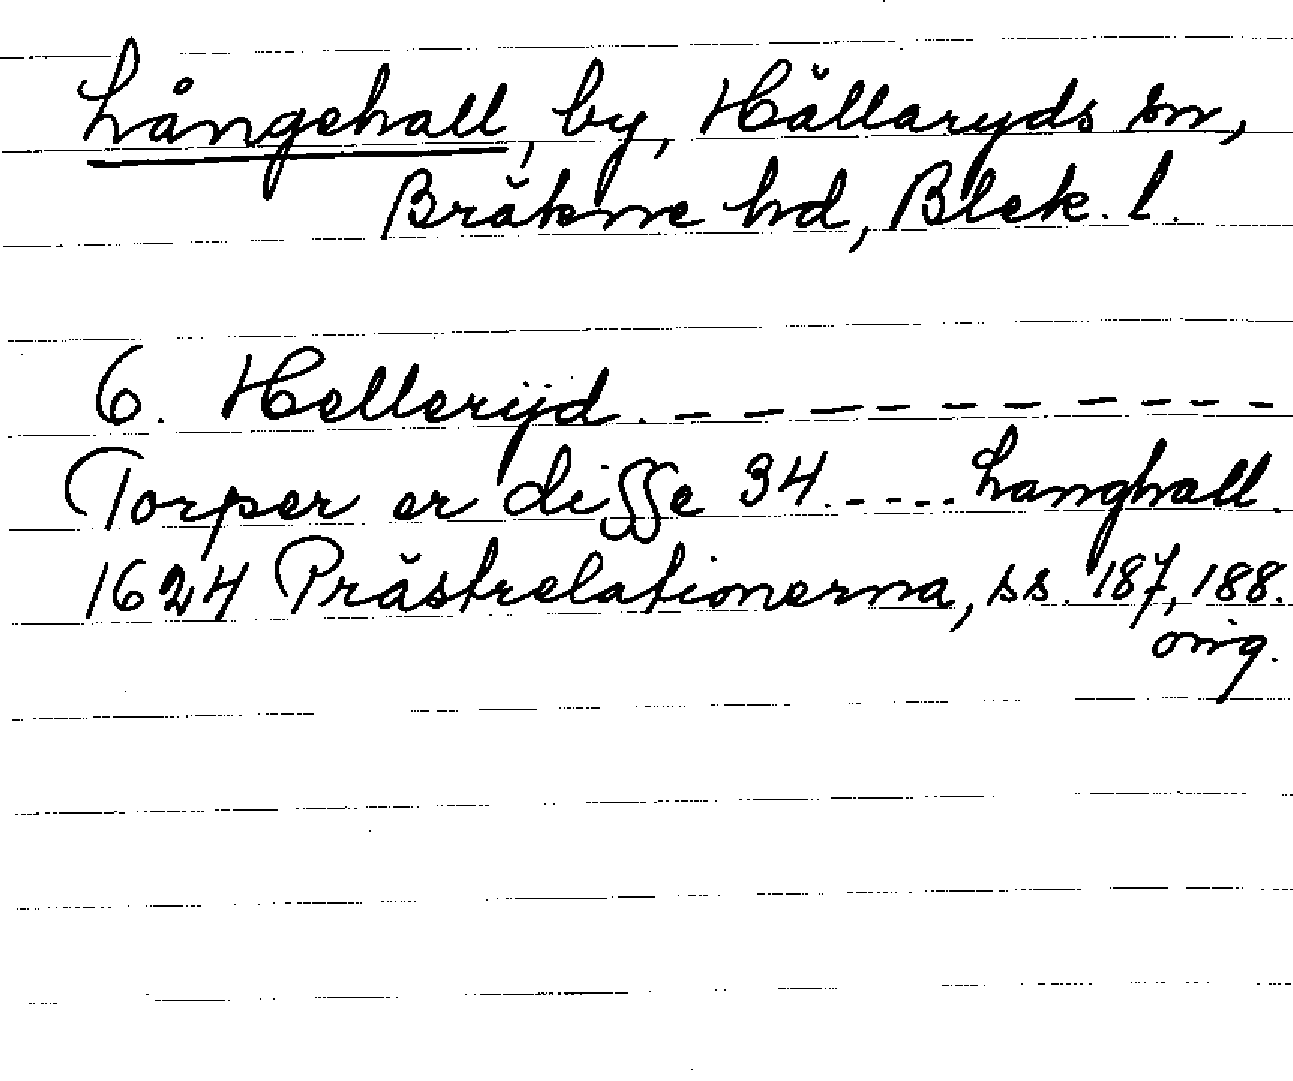 Långehall, by, Hällaryds sn,
Bräkne hd, Blek. l.
6. Hellerÿd. – – – – – – – – – –
Torper er disse 34. - - - . Langhall.
1624 Prästrelationerna, ss. 187, 188.
orig.